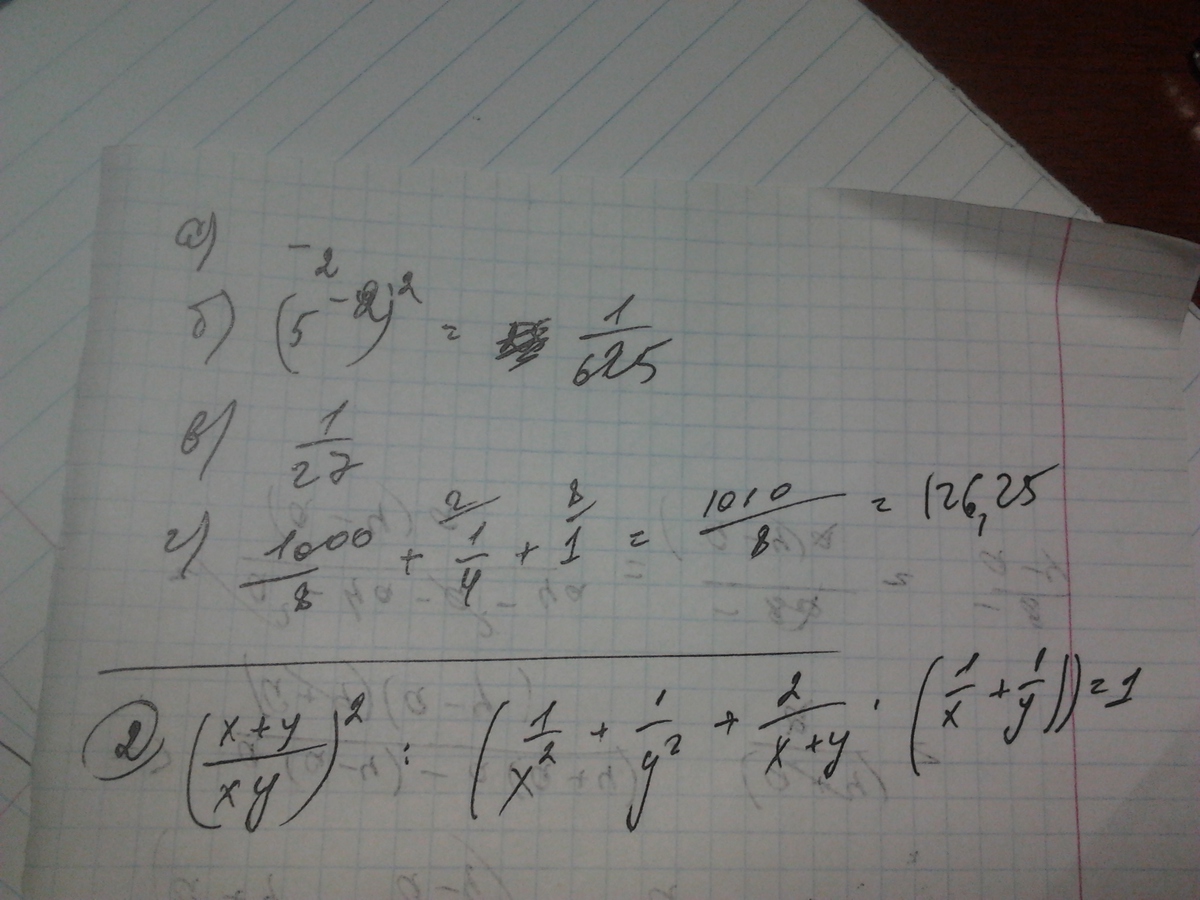 а)
б) (5⁻²)⁻² = 1/625
в) 1/27
г) 1000/8 + 1/4 + 1 = 1010/8 = 126,25
② ((x+y)/(xy))² : (1/x² + 1/y² + 2/(x+y) · (1/x + 1/y)) = 1